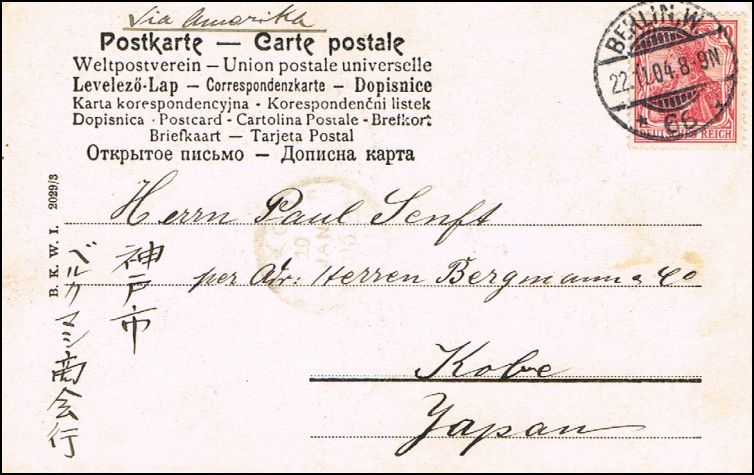 Via Amerika
Postkarte — Carte postale
Weltpostverein – Union postale universelle
Levelező-Lap – Correspondenzkarte – Dopisnice
Karta korespondencyjna - Korespondenčni listek
Dopisnica · Postcard - Cartolina Postale - Brefkort
Briefkaart — Tarjeta Postal
Открытое письмо — Дописна карта
BERLIN.W
22.11.04.8-9N
* 66
10
DEUTSCHES REICH
B. K. W. I. 2029/3
Herrn Paul Senft
per Adr: Herren Bergmann & Co
Kobe
Yapan
神戸市
ベルクマン商会行
10
JAN